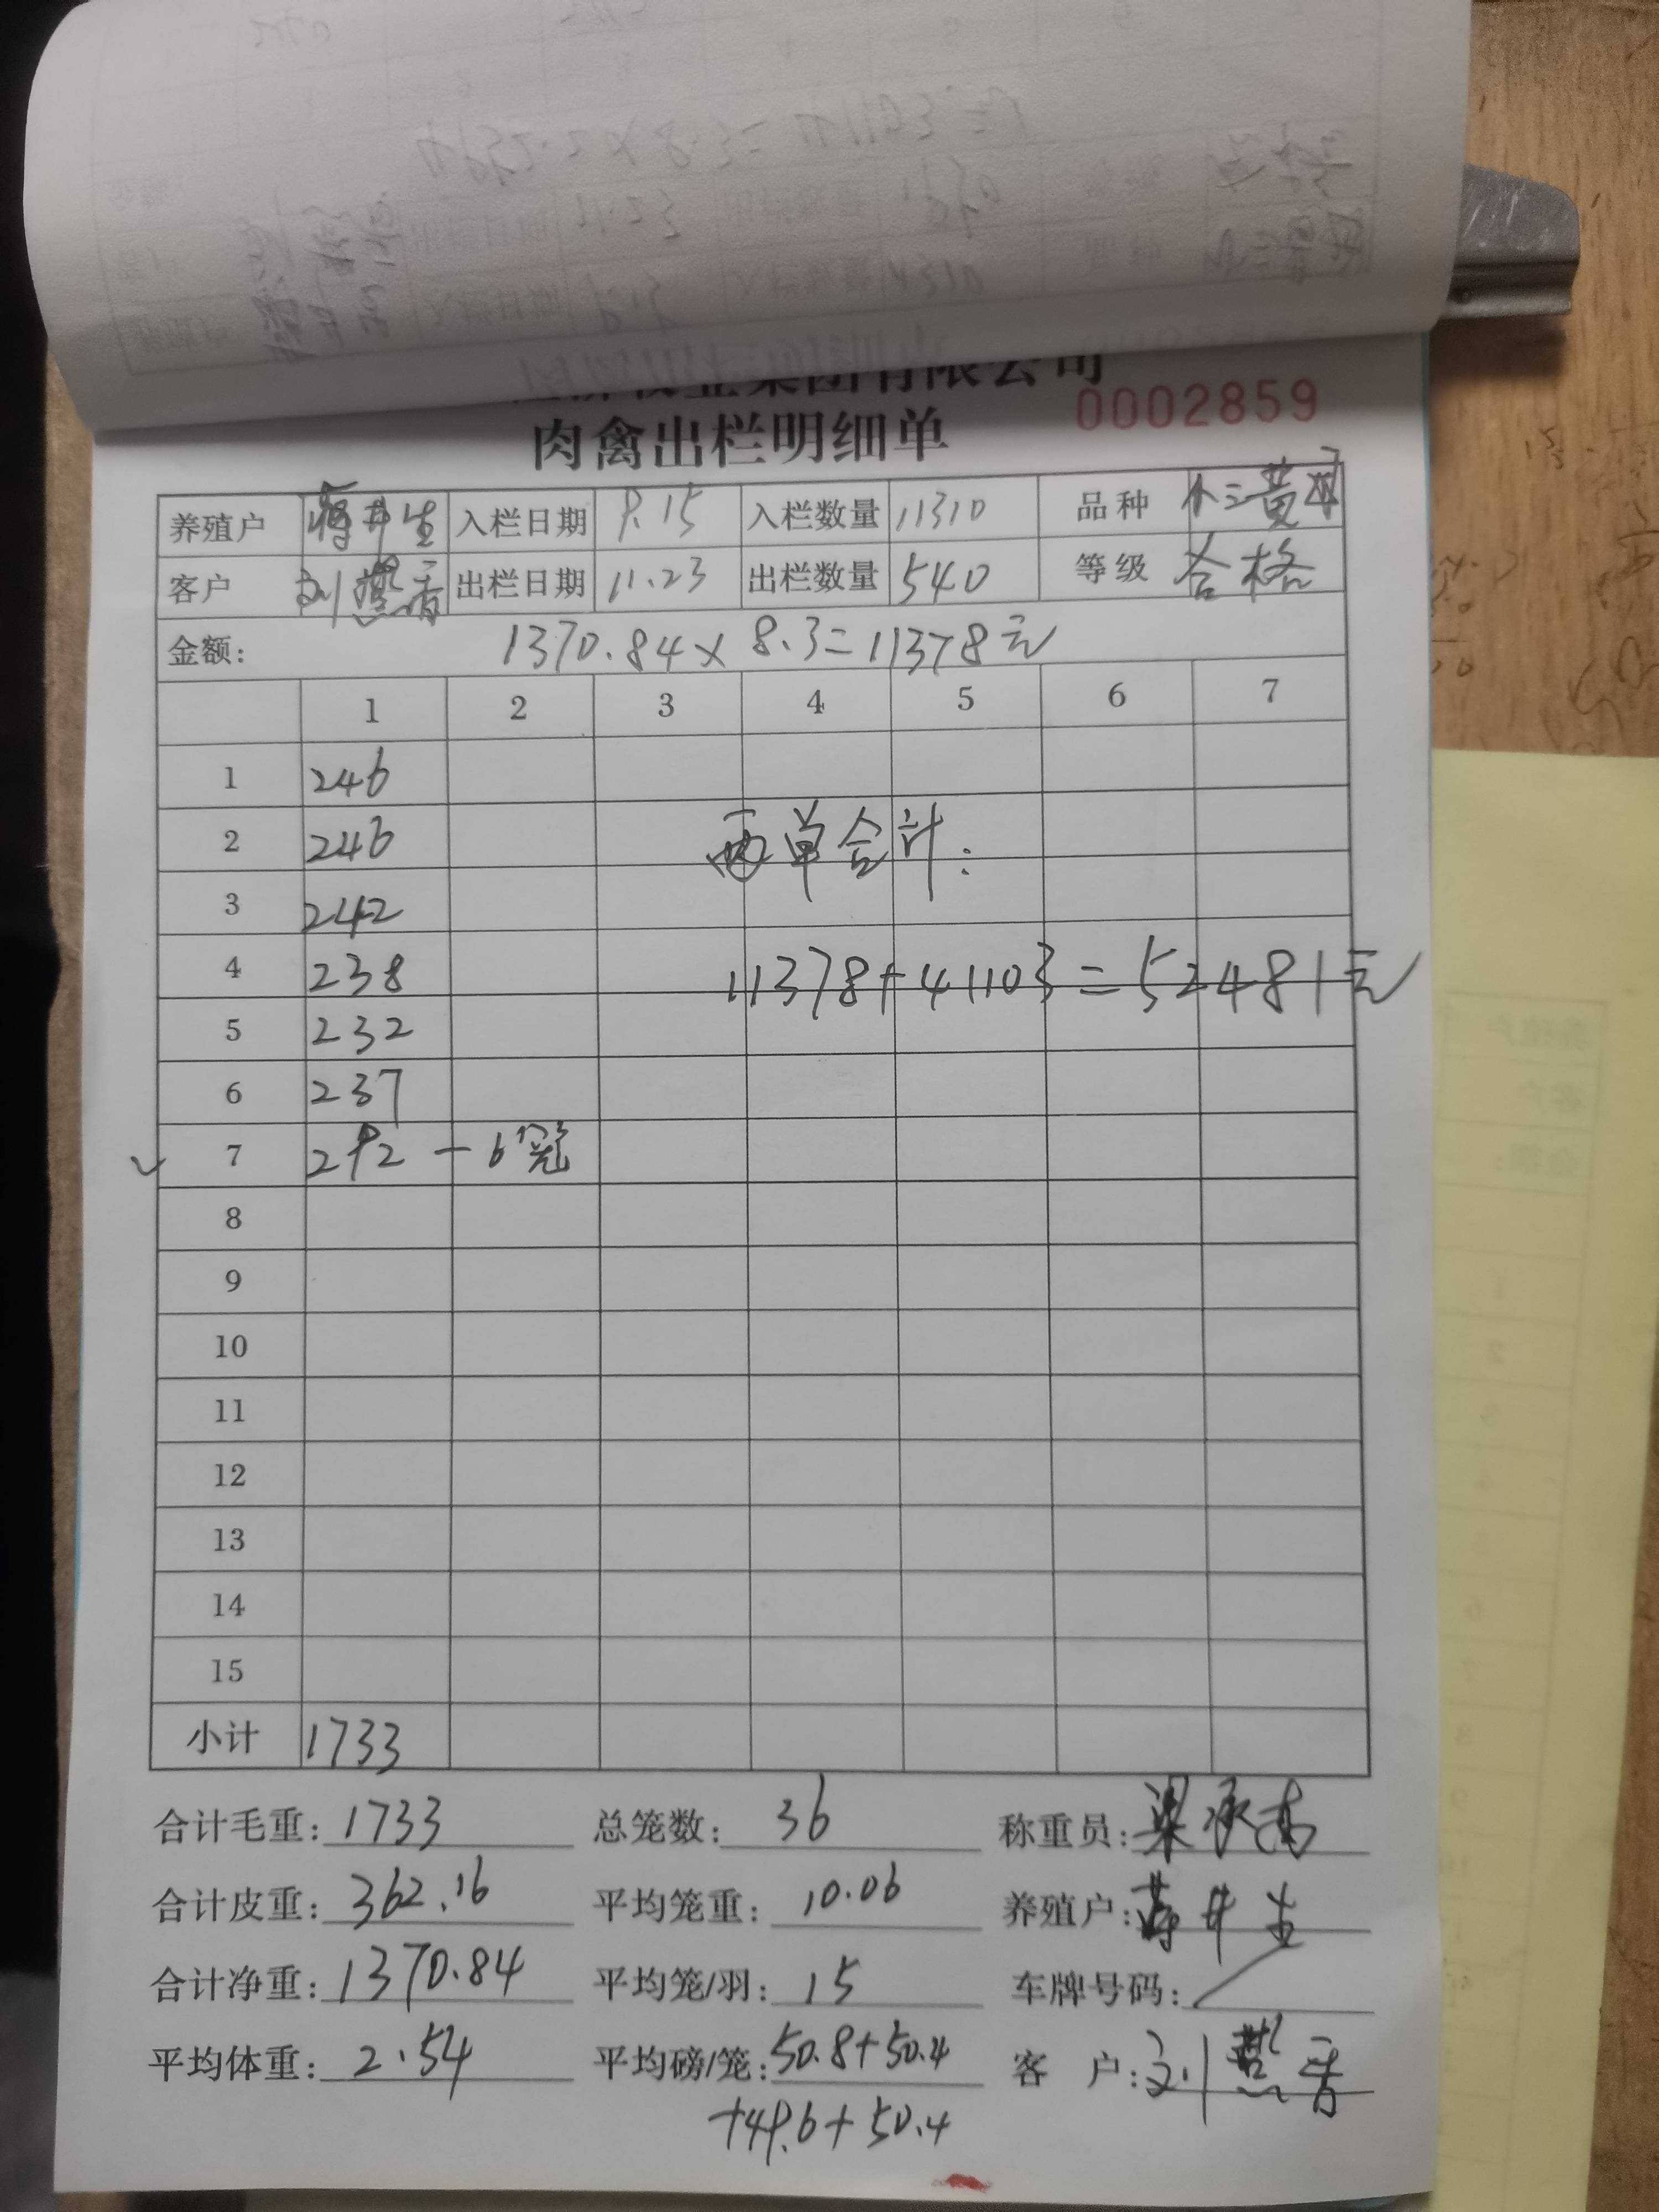 牧业集团有限公司
肉禽出栏明细单 0002859
养殖户 蒋井生 入栏日期 9.15 入栏数量 11310 品种 小三黄母
客户 刘燕香 出栏日期 11.23 出栏数量 540 等级 合格
金额: 1370.84×8.3=11378元
1 2 3 4 5 6 7
1 246
2 246
两单合计:
3 242
4 238
11378+41103=52481元
5 232
6 237
7 292 — 6笼
8
9
10
11
12
13
14
15
小计 1733
合计毛重: 1733 总笼数: 36 称重员: 梁
合计皮重: 362.16 平均笼重: 10.06 养殖户: 蒋井生
合计净重: 1370.84 平均笼/羽: 15 车牌号码: /
平均体重: 2.54 平均磅/笼: 50.8+50.4 客 户: 刘燕香
+49.6+50.4